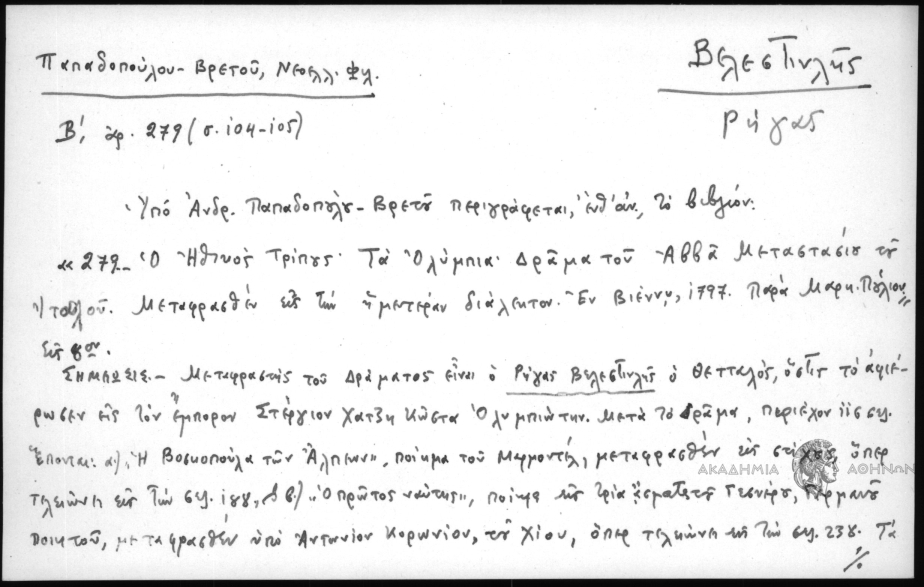 Παπαδοπούλου-Βρετοῦ, Νεοελλ. Φιλ.
Βελεστινλῆς
Β', ἀρ. 279 (σ. 104-105)
Ρήγας
Ὑπό Ἀνδρ. Παπαδοπούλου-Βρετοῦ περιγράφεται, ἐνθ' ἀν., το βιβλίον:
«279_ Ὁ Ἠθικός Τρίπους· Τά Ὀλύμπια· Δρᾶμα τοῦ Ἀββᾶ Μεταστασίου τοῦ
Ἰταλοῦ. Μεταφρασθέν εἰς τήν ἡμετέραν διάλεκτον. Ἐν Βιέννῃ, 1797. Παρά Μαρκ. Πούλιου,,
εἰς 8ον.
Σημείωσις.- Μεταφραστής τοῦ Δράματος εἶναι ὁ Ρήγας Βελεστινλῆς ὁ Θετταλός, ὅστις τό ἀφιέ-
ρωσεν εἰς τόν ἔμπορον Στέργιον Χατζῆ Κώστα Ὀλυμπιώτην. Μετά το δρᾶμα, περιέχον 115 σελ.
ἕπονται: α) „Ἡ Βοσκοπούλα τῶν Ἄλπεων", ποίημα τοῦ Μαρμοντέλ, μεταφρασθέν εἰς στίχους, ὅπερ
τελειώνει εἰς τήν σελ. 188, β) „Ὁ πρῶτος ναύτης", ποίημα εἰς τρία ᾄσματα τοῦ Γεσνέρου, Γερμανοῦ
ποιητοῦ, μεταφρασθέν ὑπό Ἀντωνίου Κορωνίου, τοῦ Χίου, ὅπερ τελειώνει εἰς τήν σελ. 238. Τά
·/.
ΑΚΑΔΗΜΙΑ ΑΘΗΝΩΝ